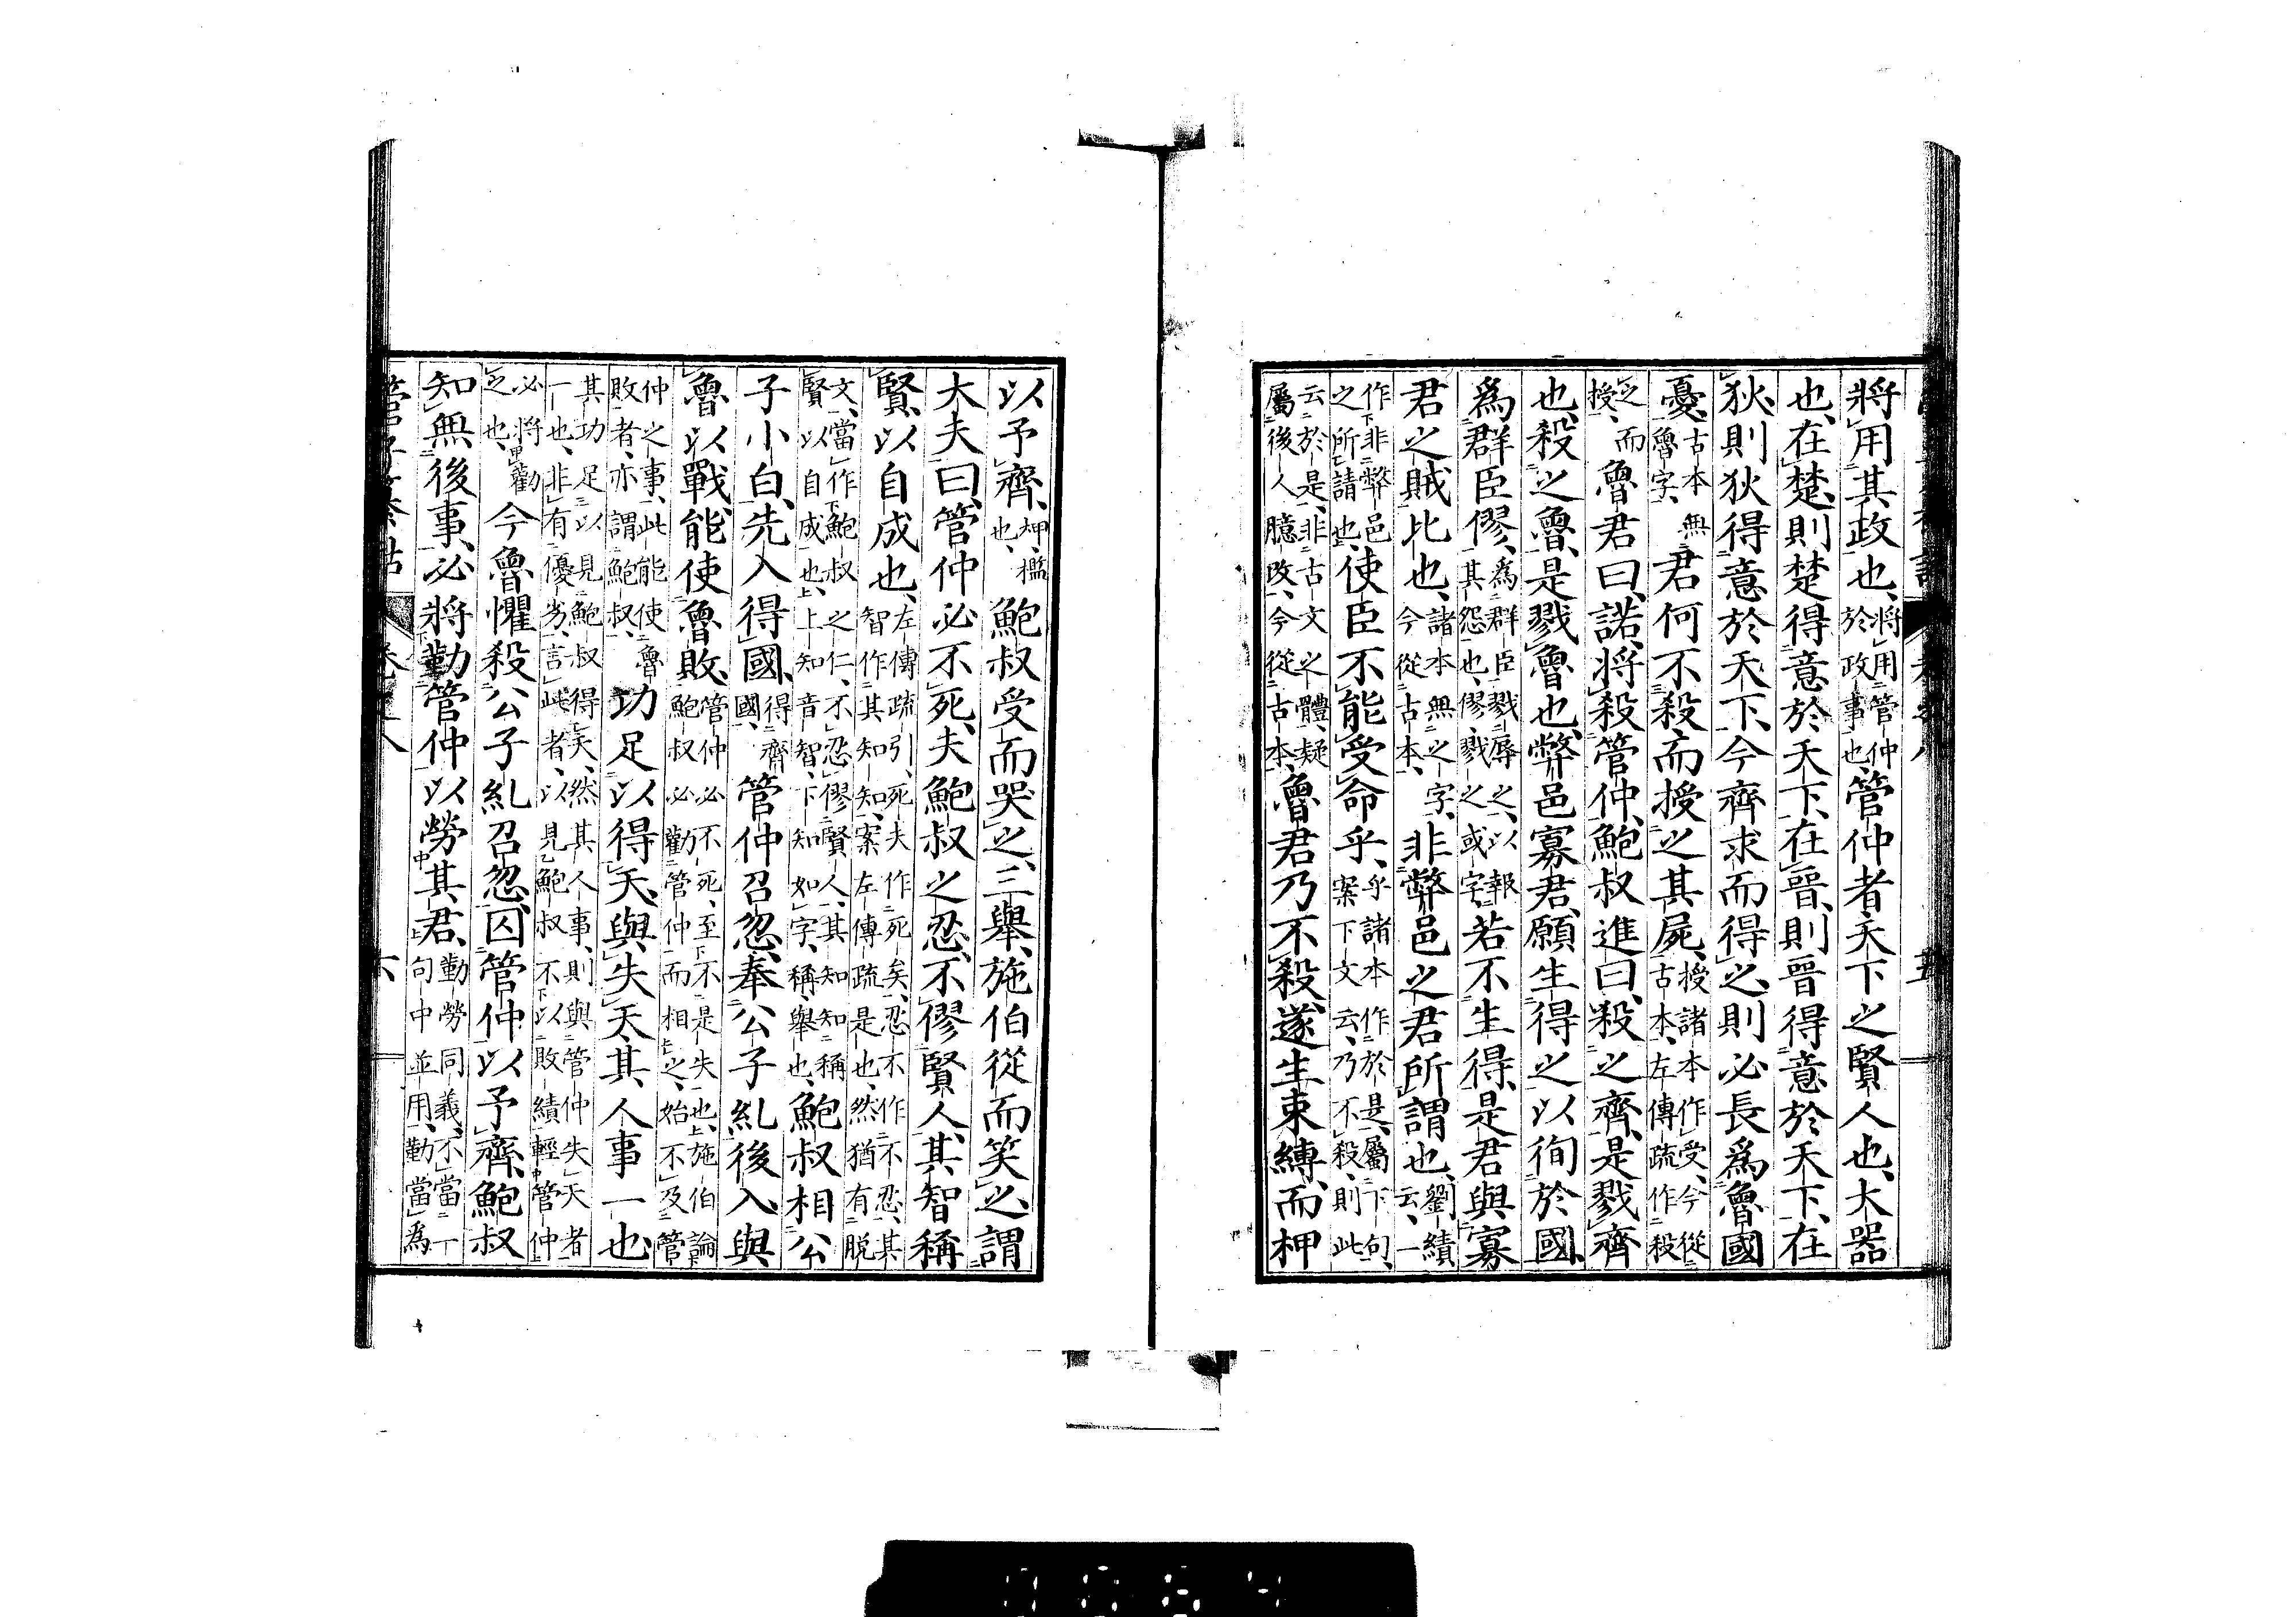 將用其政也、將用管仲於政事也、管仲者天下之賢人也、大器
也、在楚、則楚得意於天下、在晉、則晉得意於天下、在
狄、則狄得意於天下、今齊求而得之、則必長爲魯國
憂、古本無魯字、君何不殺而授之其屍、授諸本作受、今從古本、左傳疏作殺
之而授、魯君曰、諾、將殺管仲、鮑叔進曰、殺之齊、是戮齊
也、殺之魯、是戮魯也、弊邑寡君、願生得之以徇於國、
爲群臣僇、爲群臣戮辱之、以報其怨也、僇戮之或字、若不生得、是君與寡
君之賊比也、諸本無之字、今從古本、非弊邑之君所謂也、劉績云、一
作非弊邑之所請也、使臣不能受命乎、乎諸本作於是、屬下句、案下文云、乃不殺、則此
云於是、非古文之體、疑屬後人臆改、今從古本、魯君乃不殺、遂生束縛、而柙
以予齊、柙、檻也、鮑叔受而哭之、三舉、施伯從而笑之、謂
大夫曰、管仲必不死、夫鮑叔之忍、不僇賢人、其智稱
賢、以自成也、左傳疏引、死夫作死矣、忍不作不忍、其智作其知知、案左傳疏是也、然猶有脱
文、當作鮑叔之仁、不忍僇賢人、其知知稱賢以自成也、上知音智、下知如字、稱、舉也、鮑叔相公
子小白、先入得國、得齊國、管仲召忽、奉公子糺後入、與
魯以戰、能使魯敗、管仲必不死、至不是失也、施伯論鮑叔必勸管仲而相之、始不及管
仲之事、此能使魯敗者、亦謂鮑叔、功足以得天、與失天、其人事一也、
其功足以見鮑叔得天、然其人事、則與管仲失天者一也、非有優劣、言此者、以見鮑叔不以敗績輕管仲
必將勸之也、今魯懼、殺公子糺召忽、囚管仲以予齊、鮑叔
知無後事、必將勤管仲以勞其君、勤勞同義、不當一句中並用、勤當爲
管子纂詁 卷之八 六